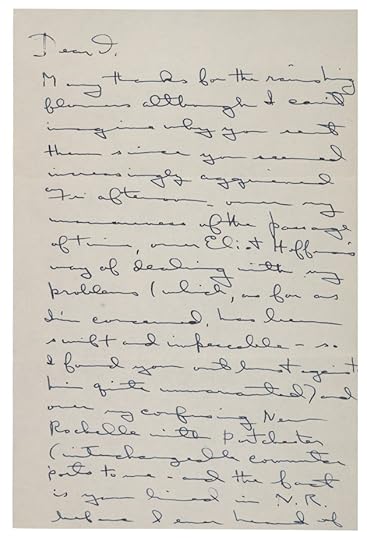 Dear I,
Many thanks for the ravishing
flowers although I can't
imagine why you sent
them since you seemed
increasingly aggrieved
Fri afternoon – over my
unawareness of the passage
of time, over Eliot Hoffman's
way of dealing with my
problems (which, as far as
I'm concerned, has been
swift and impeccable – so
I found your outburst against
him quite unwarranted) and
over my confusing New
Rochelle with Portchester
(interchangeable commuter
ports to me – and the fact
is you lived in N.R.
before I ever heard of